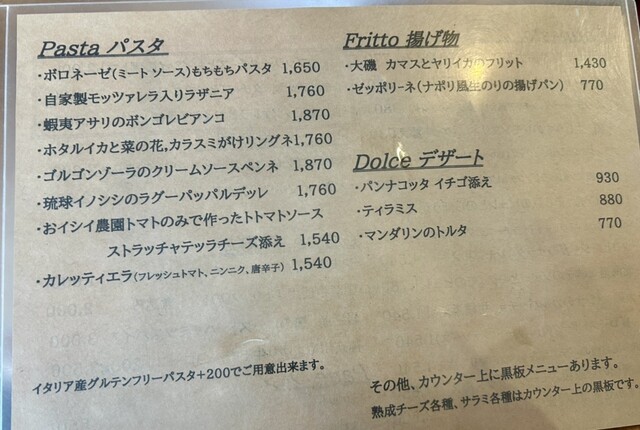 Pasta パスタ
・ボロネーゼ(ミート ソース)もちもちパスタ 1,650
・自家製モッツァレラ入りラザニア 1,760
・蝦夷アサリのボンゴレビアンコ 1,870
・ホタルイカと菜の花,カラスミがけリングネ1,760
・ゴルゴンゾーラのクリームソースペンネ 1,870
・琉球イノシシのラグーパッパルデッレ 1,760
・おイシイ農園トマトのみで作ったトトマトソース
ストラッチャテッラチーズ添え 1,540
・カレッティエラ(フレッシュトマト、ニンニク、唐辛子) 1,540
イタリア産グルテンフリーパスタ+200でご用意出来ます。
Fritto 揚げ物
・大磯 カマスとヤリイカのフリット 1,430
・ゼッポリーネ(ナポリ風生のりの揚げパン) 770
Dolce デザート
・パンナコッタ イチゴ添え 930
・ティラミス 880
・マンダリンのトルタ 770
その他、カウンター上に黒板メニューあります。
熟成チーズ各種、サラミ各種はカウンター上の黒板です。